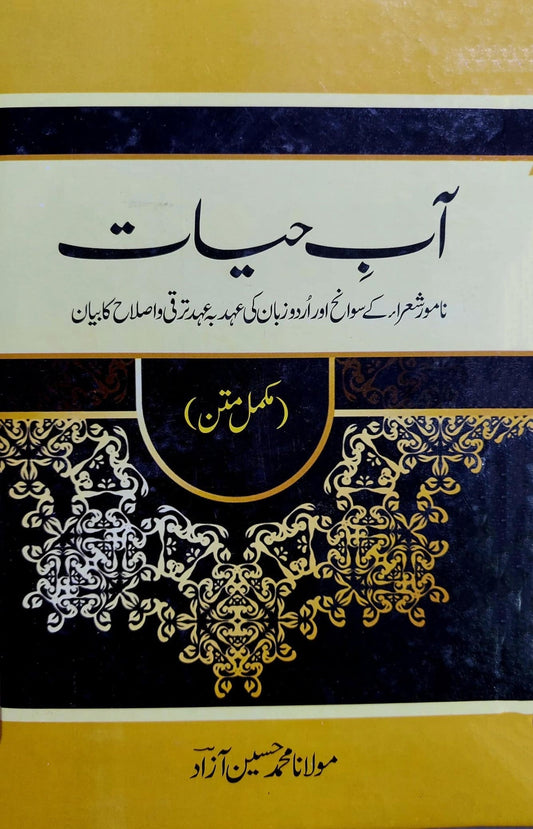 آبِ حیات
نامور شعراء کے سوانح اور اُردو زبان کی عہد بہ عہد ترقی و اصلاح کا بیان
(مکمل متن)
مولانا محمد حسین آزاد